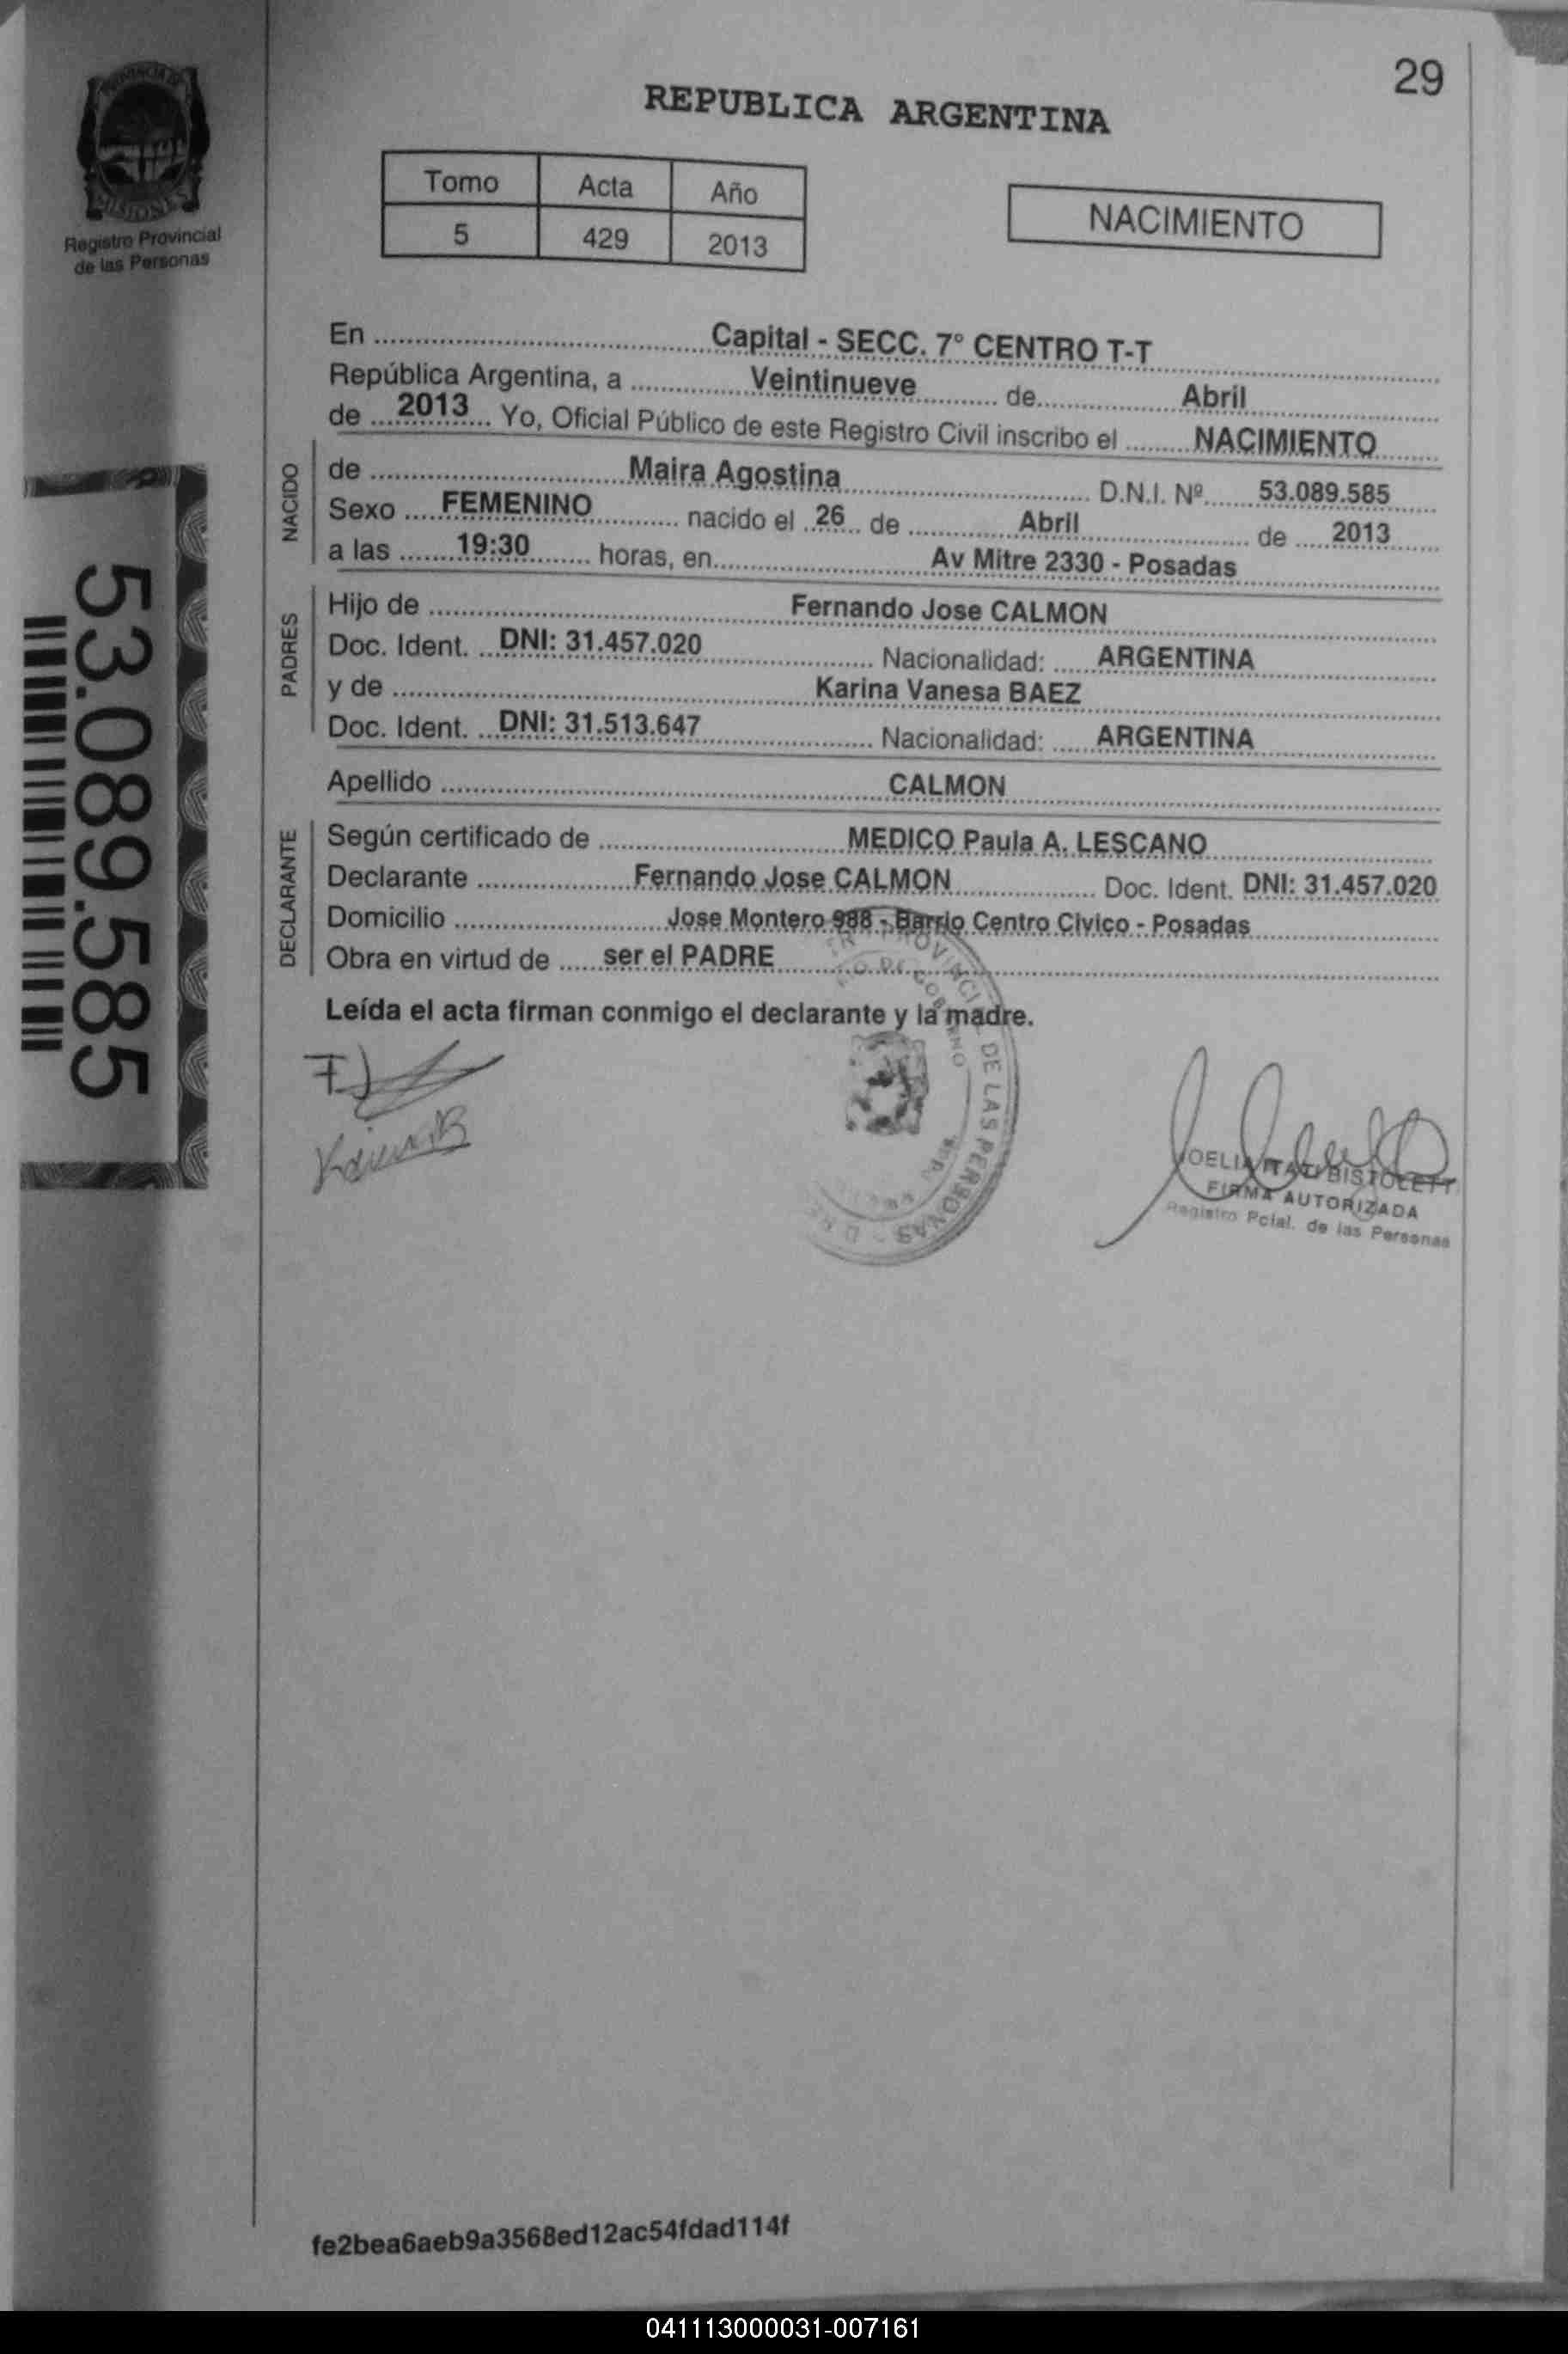 29
REPUBLICA ARGENTINA
PROVINCIA DE
MISIONES
Registro Provincial
de las Personas
Tomo Acta Año
5 429 2013
NACIMIENTO
En Capital - SECC. 7° CENTRO T-T
República Argentina, a Veintinueve de Abril
de 2013 Yo, Oficial Público de este Registro Civil inscribo el NACIMIENTO
NACIDO
de Maira Agostina D.N.I. Nº 53.089.585
Sexo FEMENINO nacido el 26 de Abril de 2013
a las 19:30 horas, en Av Mitre 2330 - Posadas
PADRES
Hijo de Fernando Jose CALMON
Doc. Ident. DNI: 31.457.020 Nacionalidad: ARGENTINA
y de Karina Vanesa BAEZ
Doc. Ident. DNI: 31.513.647 Nacionalidad: ARGENTINA
Apellido CALMON
DECLARANTE
Según certificado de MEDICO Paula A. LESCANO
Declarante Fernando Jose CALMON Doc. Ident. DNI: 31.457.020
Domicilio Jose Montero 988 - Barrio Centro Civico - Posadas
Obra en virtud de ser el PADRE
Leída el acta firman conmigo el declarante y la madre.
53.089.585
DE LAS PERSONAS
FIRMA AUTORIZADA
Registro Pcial. de las Personas
fe2bea6aeb9a3568ed12ac54fdad114f
041113000031-007161